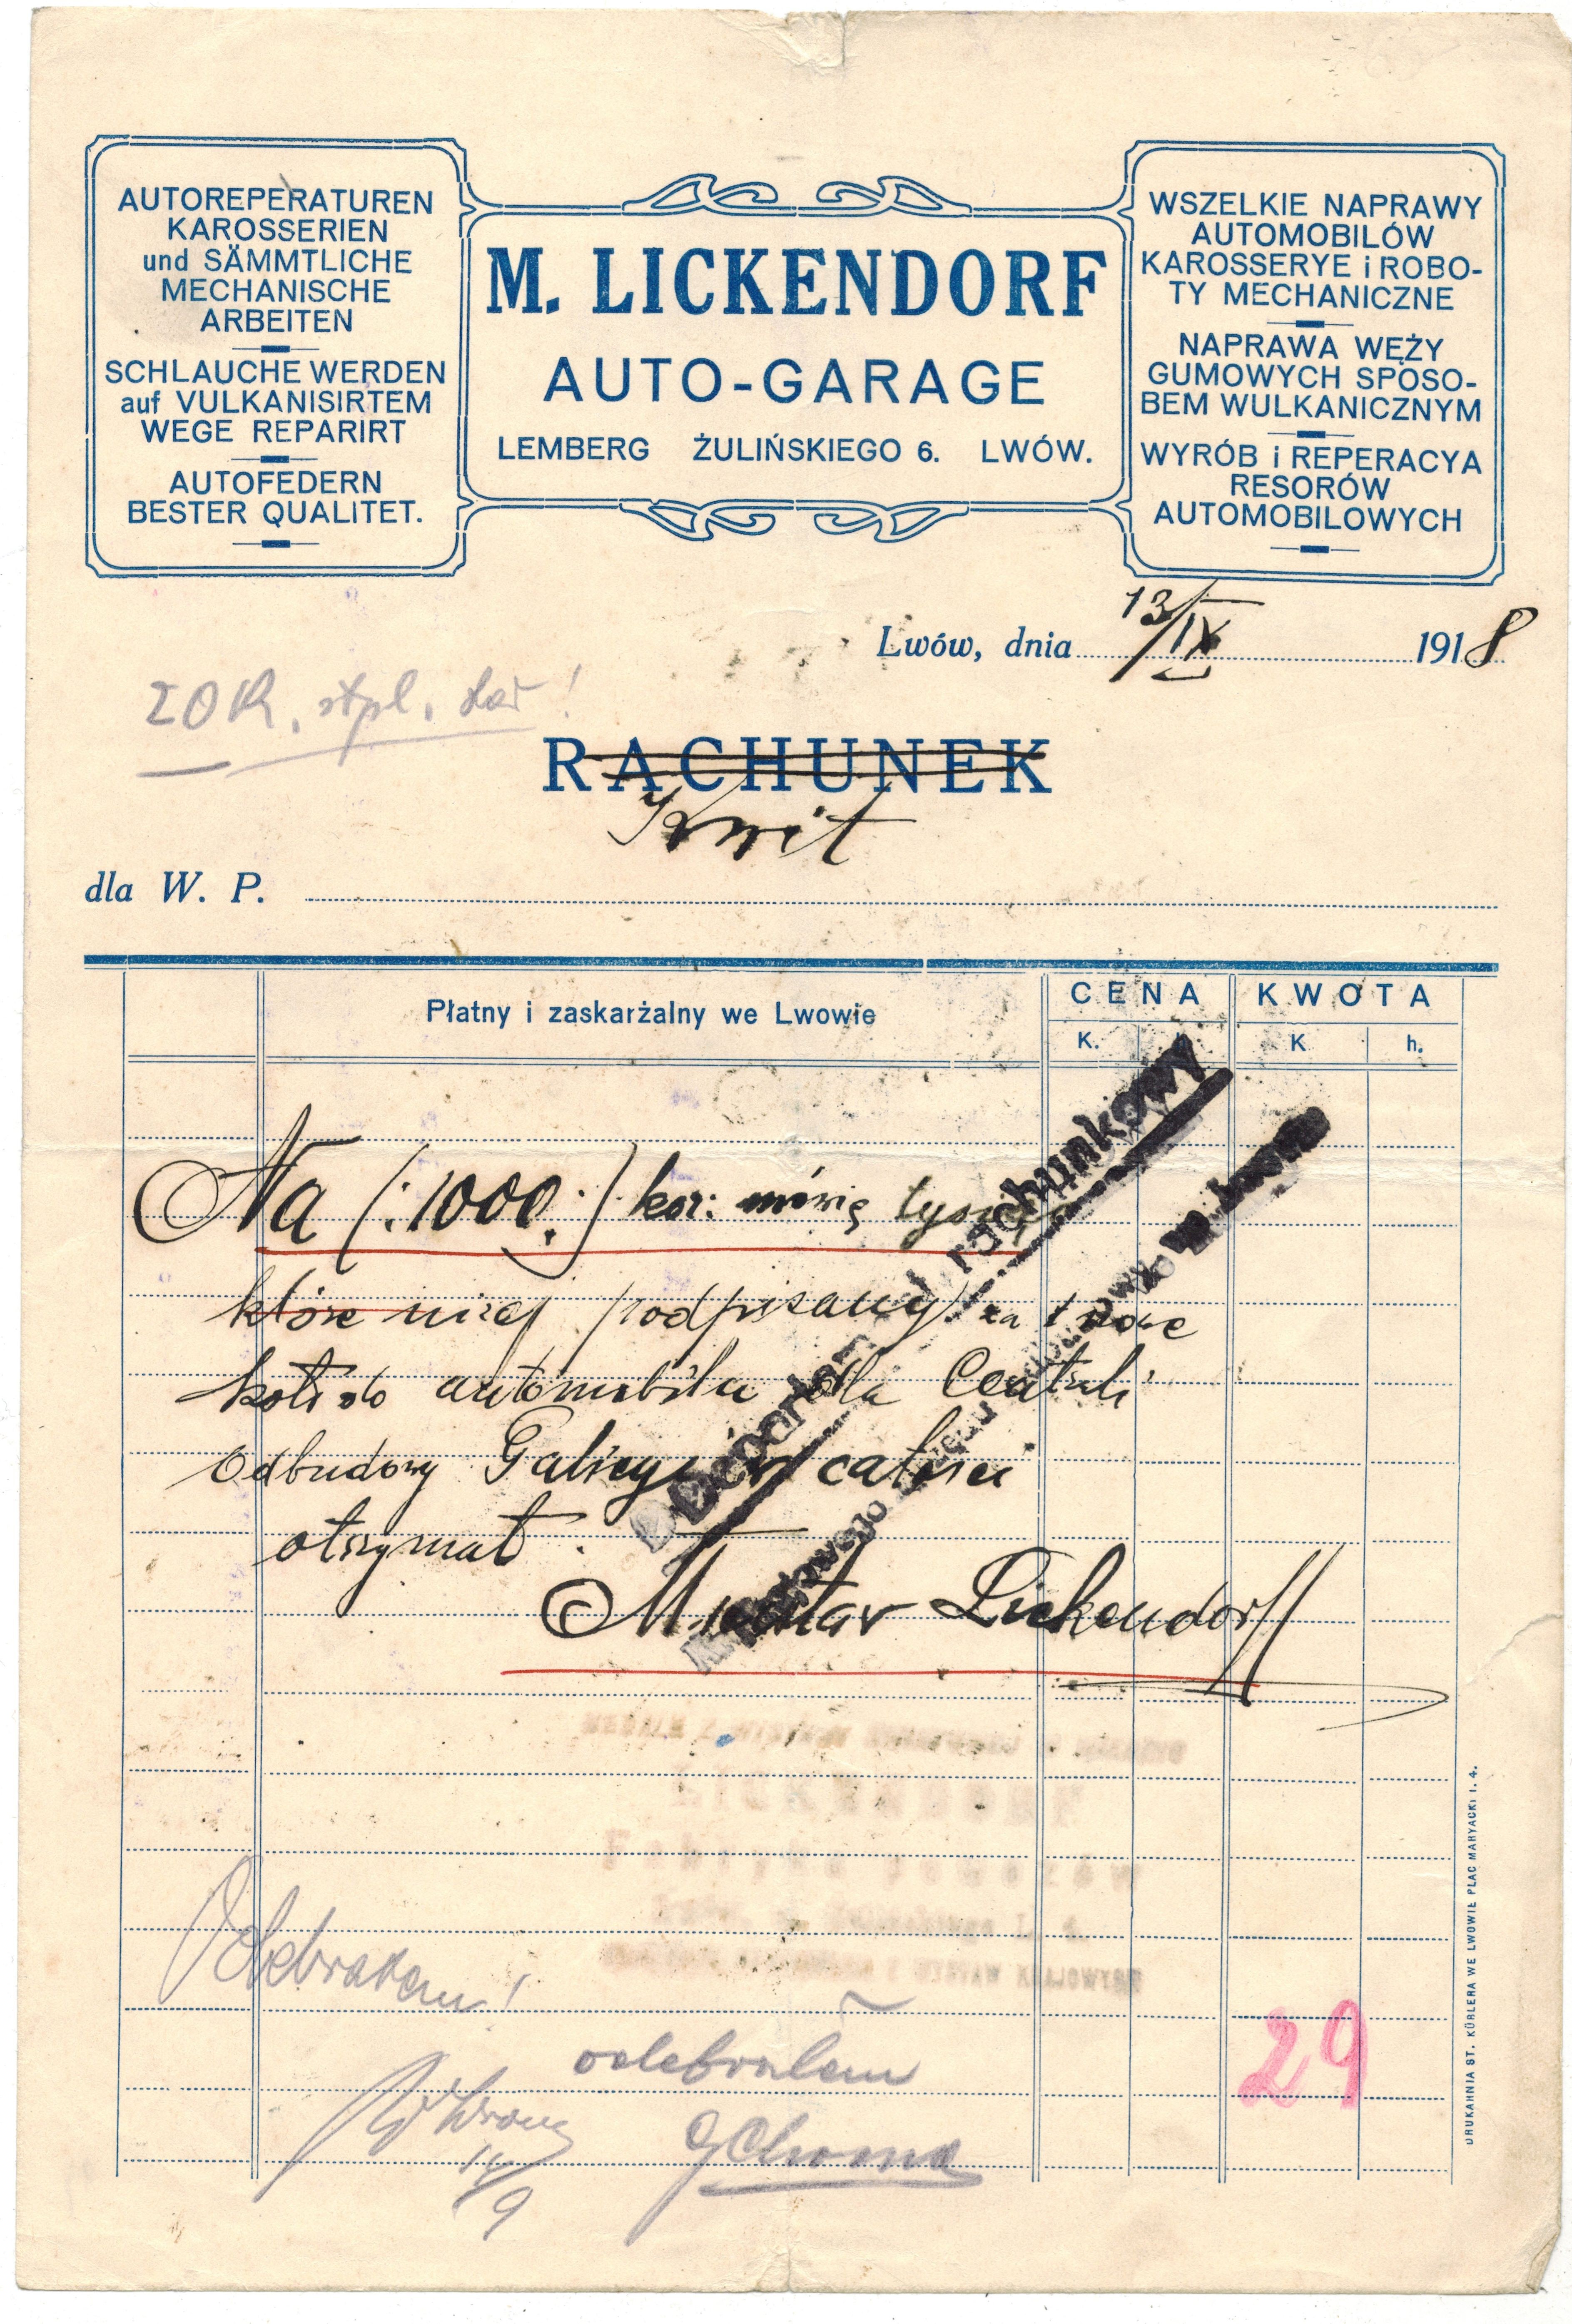 AUTOREPERATUREN
KAROSSERIEN
und SÄMMTLICHE
MECHANISCHE
ARBEITEN
SCHLAUCHE WERDEN
auf VULKANISIRTEM
WEGE REPARIRT
AUTOFEDERN
BESTER QUALITET.
M. LICKENDORF
AUTO-GARAGE
LEMBERG ŻULIŃSKIEGO 6. LWÓW.
WSZELKIE NAPRAWY
AUTOMOBILÓW
KAROSSERYE i ROBO-
TY MECHANICZNE
NAPRAWA WĘŻY
GUMOWYCH SPOSO-
BEM WULKANICZNYM
WYRÓB i REPERACYA
RESORÓW
AUTOMOBILOWYCH
Lwów, dnia 13/IX 1918
20 K. stpl.
RACHUNEK
Kwit
dla W. P.
Płatny i zaskarżalny we Lwowie
CENA KWOTA
K. K h.
Na (:1000:) kor: mówię tysiąc
które niżej podpisany za
do automobilu dla Centrali
Odbudowy Galicyi w całości
otrzymał.
Lickendorf
Departament rachunkowy
we Lwowie
LICKENDORF
Odebrałem!
odebrałem
14/9
29
DRUKARNIA ST. KÜBLERA WE LWOWIE PLAC MARYACKI l. 4.